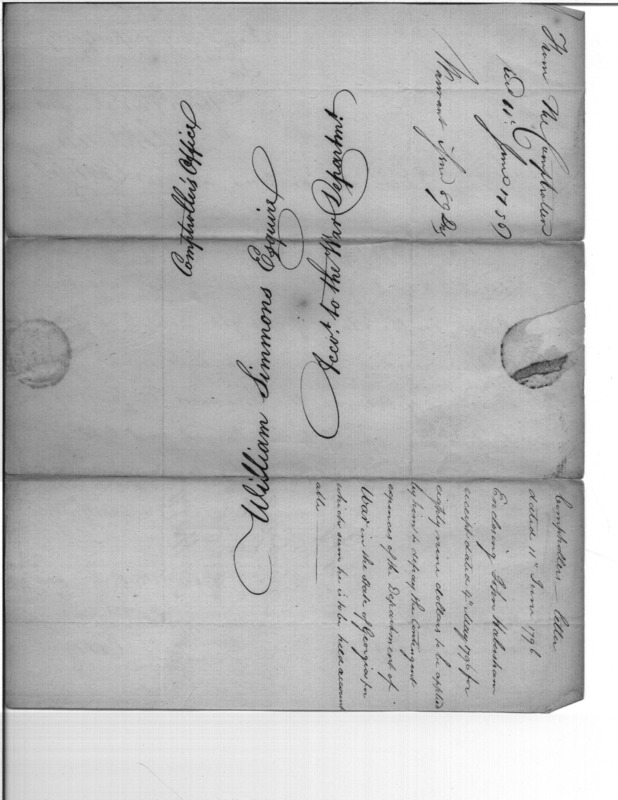 From The Comptroller
11th June
Warrant Issued 89 Drs
Comptroller's Office
William Simmons Esquire
Accot. to the War Departmt.
Comptrollers — letter
dated 11th June 1796
Enclosing John Habersham
receipt dated 9th May 1796 for
eighty nine dollars to be applied
by him to defray the Contingent
expences of the Department of
War in the State of Georgia for
which sum he is to be held account
able